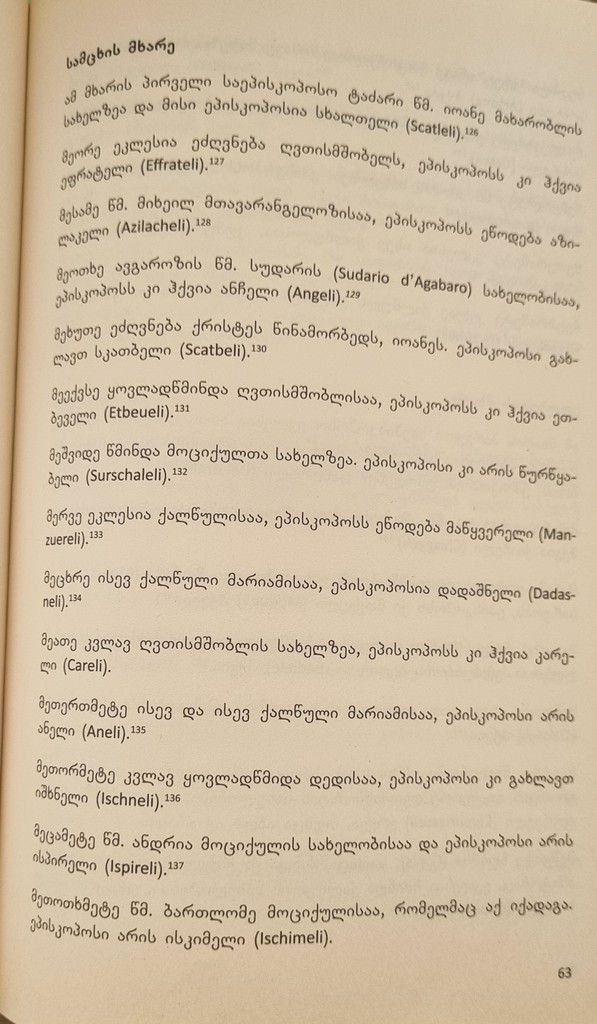 სამცხის მხარე
ამ მხარის პირველი საეპისკოპოსო ტაძარი წმ. იოანე მახარობლის
სახელზეა და მისი ეპისკოპოსია სხალთელი (Scatleli).¹²⁶
მეორე ეკლესია ეძღვნება ღვთისმშობელს, ეპისკოპოსს კი ჰქვია
ეფრატელი (Effrateli).¹²⁷
მესამე წმ. მიხეილ მთავარანგელოზისაა, ეპისკოპოსს ეწოდება აზი-
ლაკელი (Azilacheli).¹²⁸
მეოთხე ავგაროზის წმ. სუდარის (Sudario d'Agabaro) სახელობისაა,
ეპისკოპოსს კი ჰქვია ანჩელი (Angeli).¹²⁹
მეხუთე ეძღვნება ქრისტეს წინამორბედს, იოანეს. ეპისკოპოსი გახ-
ლავთ სკათბელი (Scatbeli).¹³⁰
მეექვსე ყოვლადწმინდა ღვთისმშობლისაა, ეპისკოპოსს კი ჰქვია ეთ-
ბეველი (Etbeueli).¹³¹
მეშვიდე წმინდა მოციქულთა სახელზეა. ეპისკოპოსი კი არის წურწყა-
ბელი (Surschaleli).¹³²
მერვე ეკლესია ქალწულისაა, ეპისკოპოსს ეწოდება მაწყვერელი (Man-
zuereli).¹³³
მეცხრე ისევ ქალწული მარიამისაა, ეპისკოპოსია დადაშნელი (Dadas-
neli).¹³⁴
მეათე კვლავ ღვთისმშობლის სახელზეა, ეპისკოპოსს კი ჰქვია კარე-
ლი (Careli).
მეთერთმეტე ისევ და ისევ ქალწული მარიამისაა, ეპისკოპოსი არის
ანელი (Aneli).¹³⁵
მეთორმეტე კვლავ ყოვლადწმიდა დედისაა, ეპისკოპოსი კი გახლავთ
იშხნელი (Ischneli).¹³⁶
მეცამეტე წმ. ანდრია მოციქულის სახელობისაა და ეპისკოპოსი არის
ისპირელი (Ispireli).¹³⁷
მეთოთხმეტე წმ. ბართლომე მოციქულისაა, რომელმაც აქ იქადაგა.
ეპისკოპოსი არის ისკიმელი (Ischimeli).
63